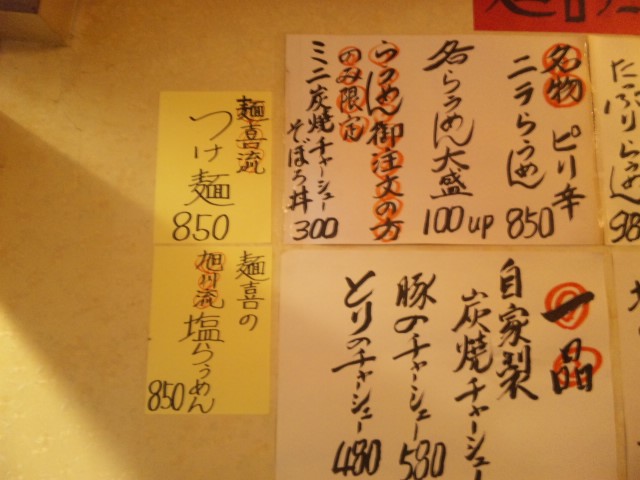 名物 ピリ辛
ニラらぅめん 850
各らぅめん大盛 100up
らぅめん御注文の方
のみ限定
ミニ炭焼チャーシュー
そぼろ丼 300
麺喜流
つけ麺
850
麺喜の
旭川流
塩らぅめん
850
一品
自家製
炭焼チャーシュー
豚のチャーシュー 580
とりのチャーシュー 480